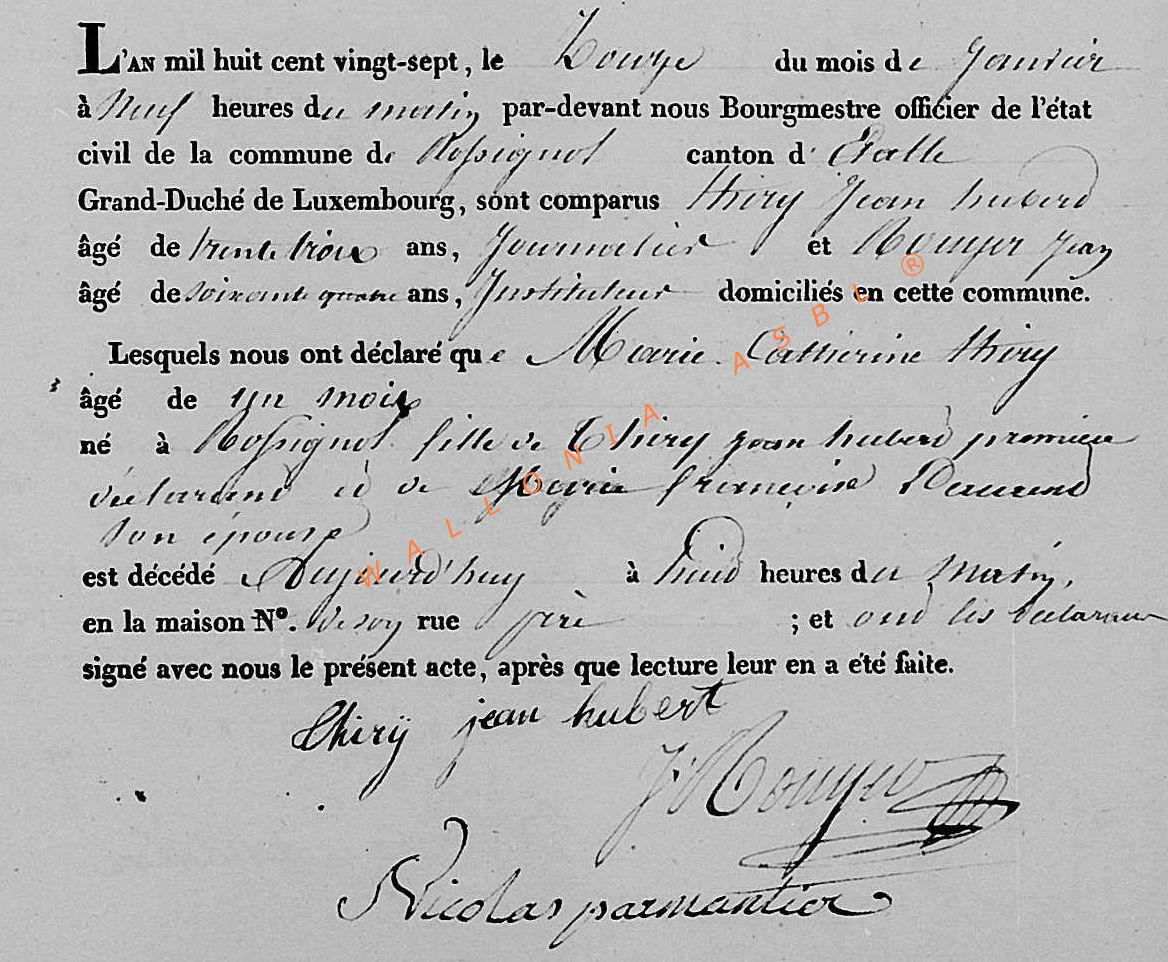 L'AN mil huit cent vingt-sept, le Douze du mois de Janvier
à Neuf heures du matin par-devant nous Bourgmestre officier de l'état
civil de la commune de Rossignol canton d' Etalle
Grand-Duché de Luxembourg, sont comparus thiry Jean huberd
âgé de trente trois ans, Journalier et Rouyer Jean
âgé de soixante quatre ans, Instituteur domiciliés en cette commune.
Lesquels nous ont déclaré que Marie Catherine thiry
âgé de un mois
né à Rossignol fille de Thiry jean huberd premier
déclarand et de Marie françoise
son épouse
est décédé Aujourd'huy à huid heures du Matin,
en la maison N°. de soy rue père ; et ond les déclarans
signé avec nous le présent acte, après que lecture leur en a été faite.
thirÿ jean hubert
J. Rouyer
Nicolas parmantier
WALLONIA ASBL ®